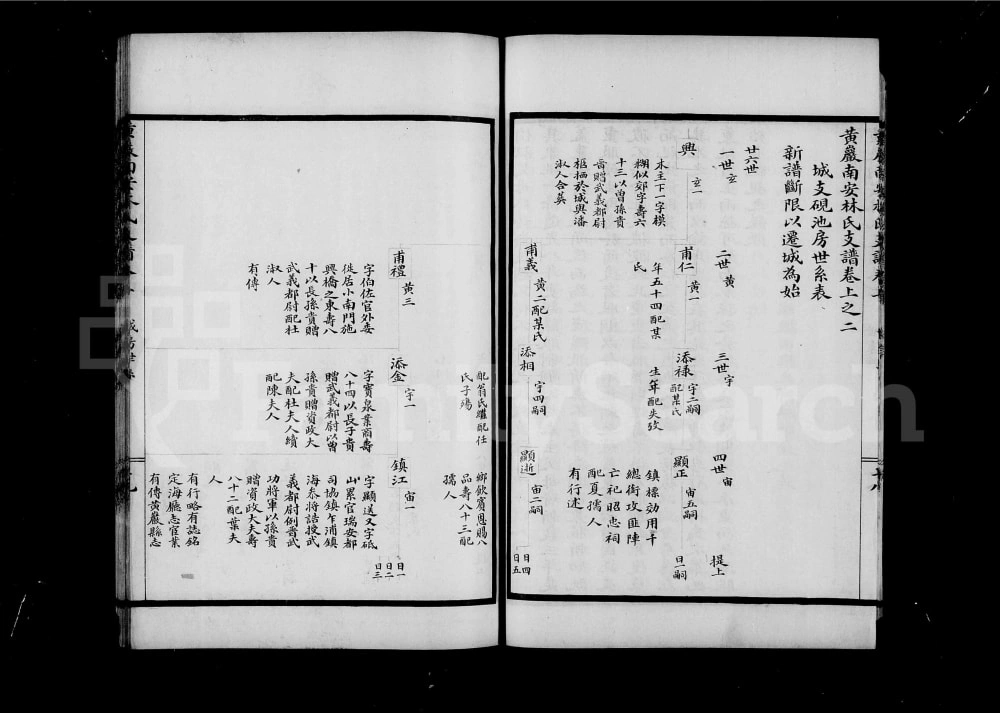 黃巖南安林氏支譜卷上之二
城支硯池房世系表
新譜斷限以遷城為始
廿六世
一世玄
二世黃
三世宇
四世宙
提上
興
玄一
木主下一字模
糊似郊字壽六
十三以曾孫貴
晉贈武義都尉
柩栖於城輿潘
淑人合葬
甫仁
黃一
年五十四配某
氏
添祿
宇二嗣
配某氏
生年配失攷
顯正
宙五嗣
日一嗣
鎮標効用千
總銜攻匪陣
亡祀昭忠祠
配夏孺人
有行述
甫義
黃二配某氏
添相
宇四嗣
顯逝
宙二嗣
日四
日五
配翁氏繼配任
氏子殤
鄉飲賓恩賜八
品壽八十三配
孺人
甫禮
黃三
字伯佐官外委
徙居小南門施
興橋之東壽八
十以長孫貴贈
武義都尉配杜
淑人
有傳
添金
宇一
字寶泉業商壽
八十四以長子貴
贈武義都尉以曾
孫貴贈資政大
夫配杜夫人續
配陳夫人
鎮江
宙一
日一
日二
日三
字顯送又字砥
山累官瑞安都
司協鎮乍浦鎮
海參將誥授武
義都尉例晉武
功將軍以孫貴
贈資政大夫壽
八十二配葉夫
人
有行略有誌銘
定海廳志宦業
有傳黃巖縣志
FamilySearch